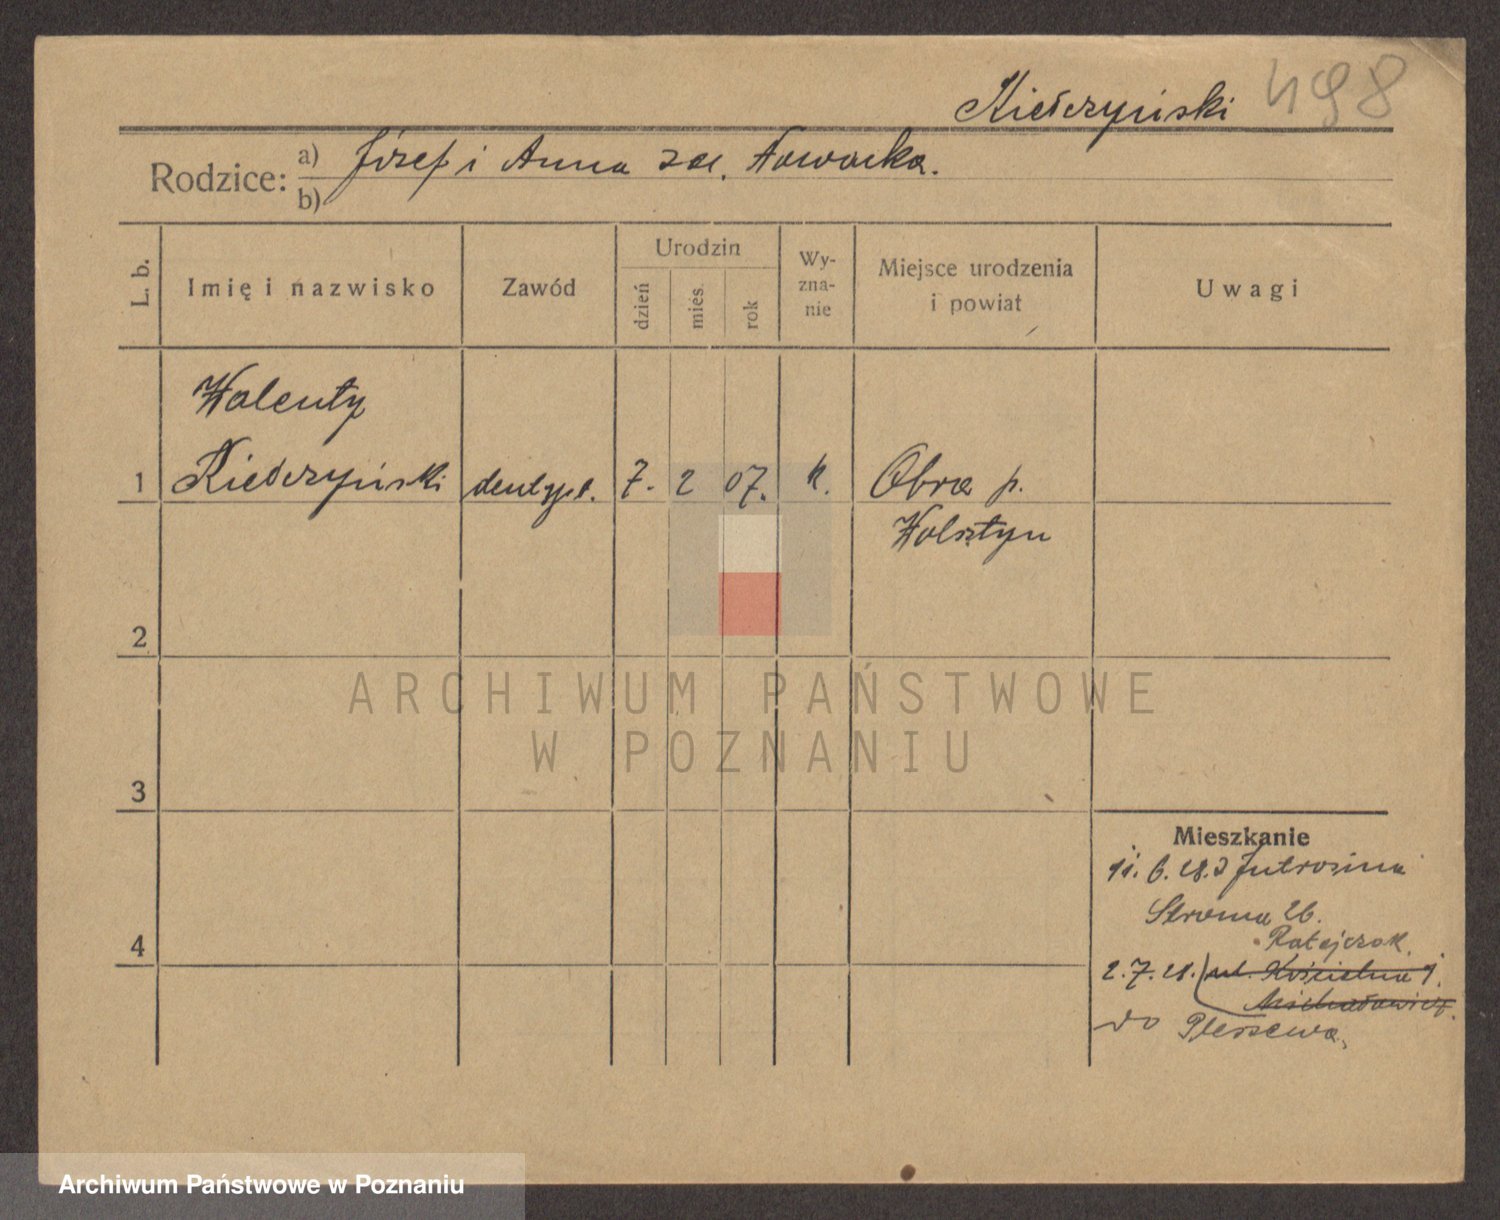 Kiełczyński 498
Rodzice: a) Józef i Anna zd. Nawocka.
b)
L. b. Imię i nazwisko Zawód Urodzin Wy-zna-nie Miejsce urodzenia i powiat Uwagi
dzień mies. rok
Walenty
1 Kiełczyński dentyst. 7. 2 07. k. Obra p.
Wolsztyn
2
ARCHIWUM PAŃSTWOWE
W POZNANIU
3
Mieszkanie
11. 6. 28. z Jutrosina
Stroma 26.
4 Ratajczak.
2. 7. 28. ul. Kościelna 1.
Michałowicz.
do Pleszewa.
Archiwum Państwowe w Poznaniu